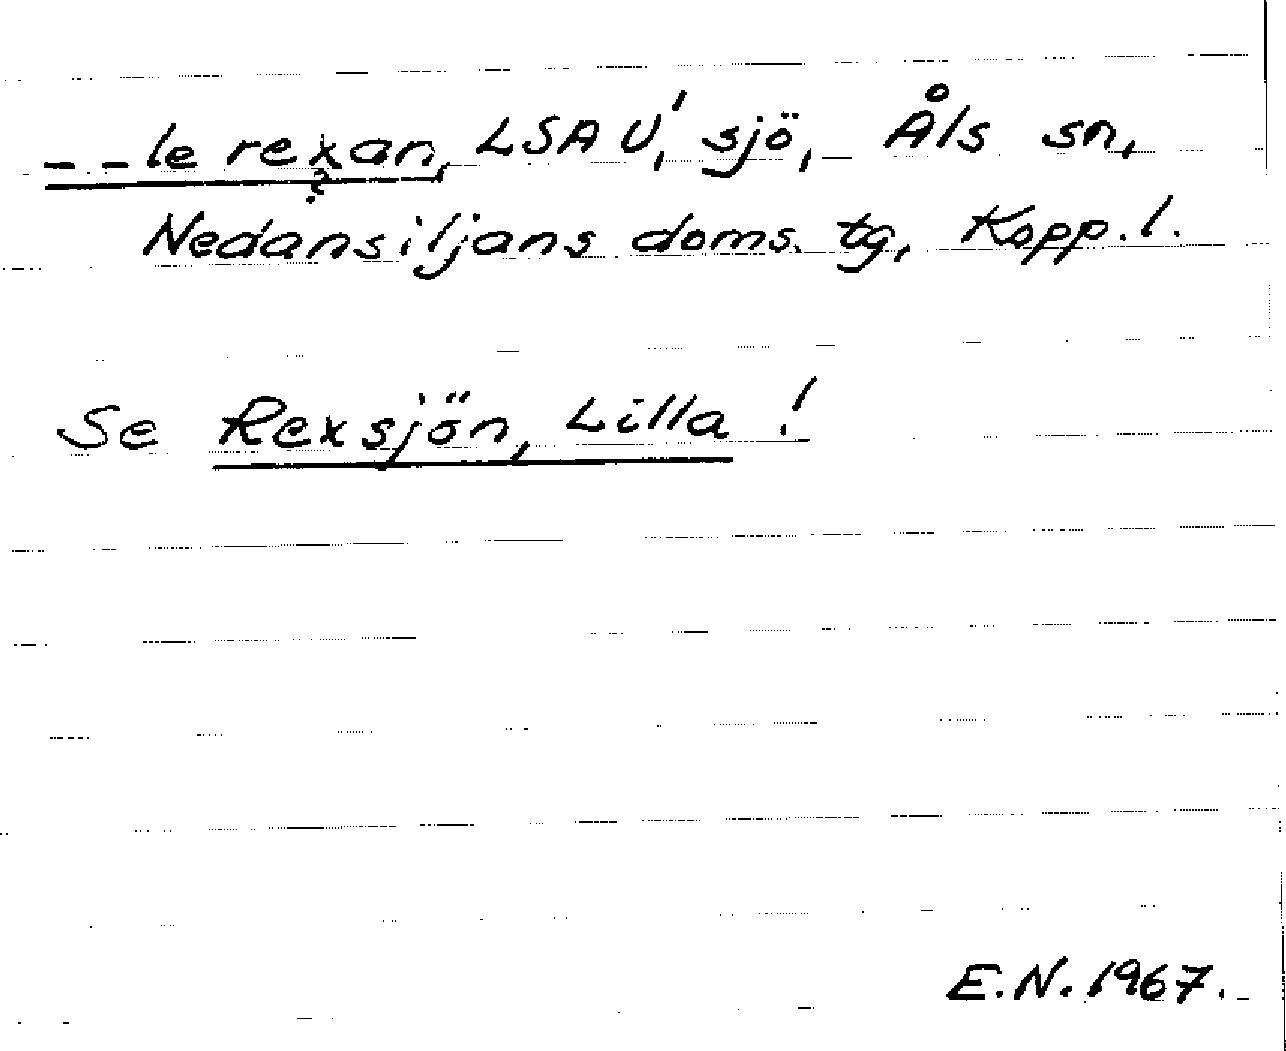 - - le rexan, LSA U,' sjö, Åls sn,
?
Nedansiljans doms. tg, Kopp. l.
Se Rexsjön, Lilla !
E.N. 1967.